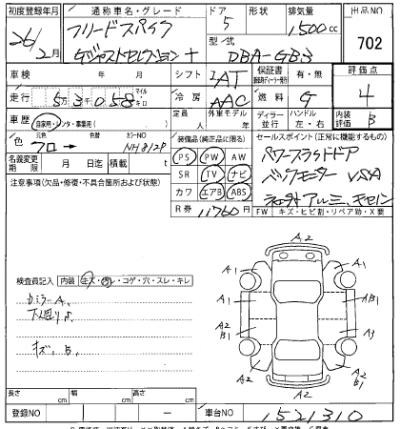 初度登録年月 通称車名・グレード ドア 形状 排気量 出品NO
26年 2月 フリードスパイク 5 1500cc 702
Gジャストセレクション+ 型式 DBA-GB3
車検 年 月 シフト AT 保証書 有・無 評価点
走行 5万3058 マイル キロ 冷房 AAC 燃料 G 4
車歴 自家用・レンタ・事業用( ) 定員 人 外車モデル 年 ディーラー 並行 ハンドル 左・右 内装評価 B
色 元色 クロ → 色替 カラーNO NH812P 装備品(純正品に限る) セールスポイント(正常に機能するもの)
名義変更期限 月 日迄 積載 t PS PW AW パワースライドドア
注意事項(欠品・修復・不具合箇所および状態) SR TV ナビ バックモニター VSA
カワ エアB ABS アルミ
R券 11760円 FW キズ・ヒビ割・リペア跡・X要
A2
検査員記入 内装 キズ・汚レ・コゲ・穴・スレ・キレ
A1 A1
Rミラー A1
下廻りサ
キズ、B
A1 A1 B1
A2 B1 A3
A2 B1 A1
A2
長さ cm 幅 cm 高さ cm
登録NO — 車台NO 1521310